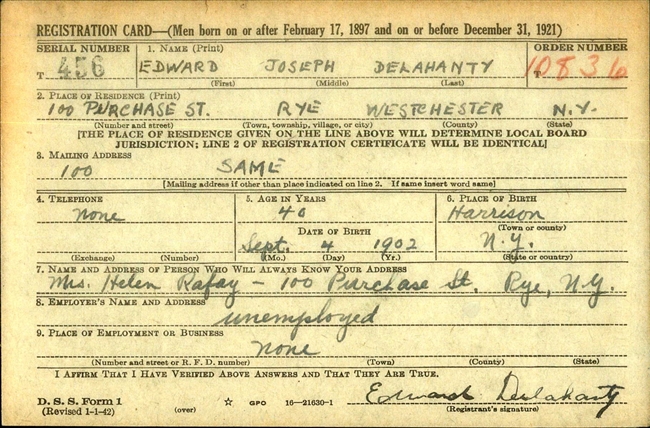 REGISTRATION CARD—(Men born on or after February 17, 1897 and on or before December 31, 1921)
SERIAL NUMBER 1. NAME (Print) ORDER NUMBER
T 456 EDWARD JOSEPH DELAHANTY T 10836
(First) (Middle) (Last)
2. PLACE OF RESIDENCE (Print)
100 PURCHASE ST. RYE WESTCHESTER N.Y.
(Number and street) (Town, township, village, or city) (County) (State)
[THE PLACE OF RESIDENCE GIVEN ON THE LINE ABOVE WILL DETERMINE LOCAL BOARD
JURISDICTION; LINE 2 OF REGISTRATION CERTIFICATE WILL BE IDENTICAL]
3. MAILING ADDRESS
100 SAME
[Mailing address if other than place indicated on line 2. If same insert word same]
4. TELEPHONE 5. AGE IN YEARS 6. PLACE OF BIRTH
none 40 Harrison
DATE OF BIRTH (Town or county)
Sept. 4 1902 N.Y.
(Exchange) (Number) (Mo.) (Day) (Yr.) (State or country)
7. NAME AND ADDRESS OF PERSON WHO WILL ALWAYS KNOW YOUR ADDRESS
Mrs. Helen Rafay – 100 Purchase St. Rye, N.Y.
8. EMPLOYER'S NAME AND ADDRESS
unemployed
9. PLACE OF EMPLOYMENT OR BUSINESS
none
(Number and street or R. F. D. number) (Town) (County) (State)
I AFFIRM THAT I HAVE VERIFIED ABOVE ANSWERS AND THAT THEY ARE TRUE.
D. S. S. Form 1 Edward Delahanty
(Revised 1-1-42) (over) ☆ GPO 16—21630-1 (Registrant's signature)